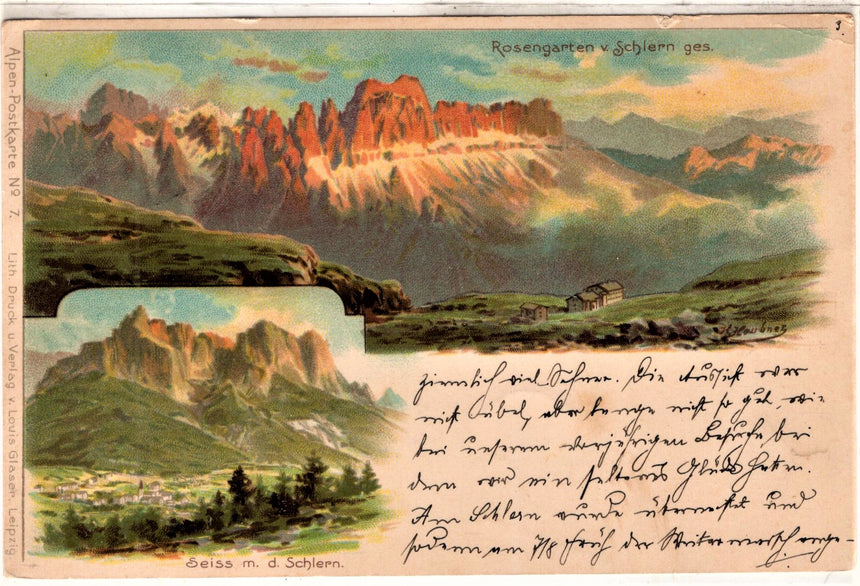 3.
Rosengarten v. Schlern ges.
Alpen-Postkarte No 7. Lith. Druck u. Verlag v. Louis Glaser, Leipzig.
ziemlich viel Schnee. Die Aussicht war
nicht übel, aber lange nicht so gut, wie
bei unserem vorjährigen Besuche bei
dem wir ein seltenes Glück hatten.
Am Schlern wurde übernachtet und
sodann um 7/8 früh der Weitermarsch ange-
Seiss m. d. Schlern.